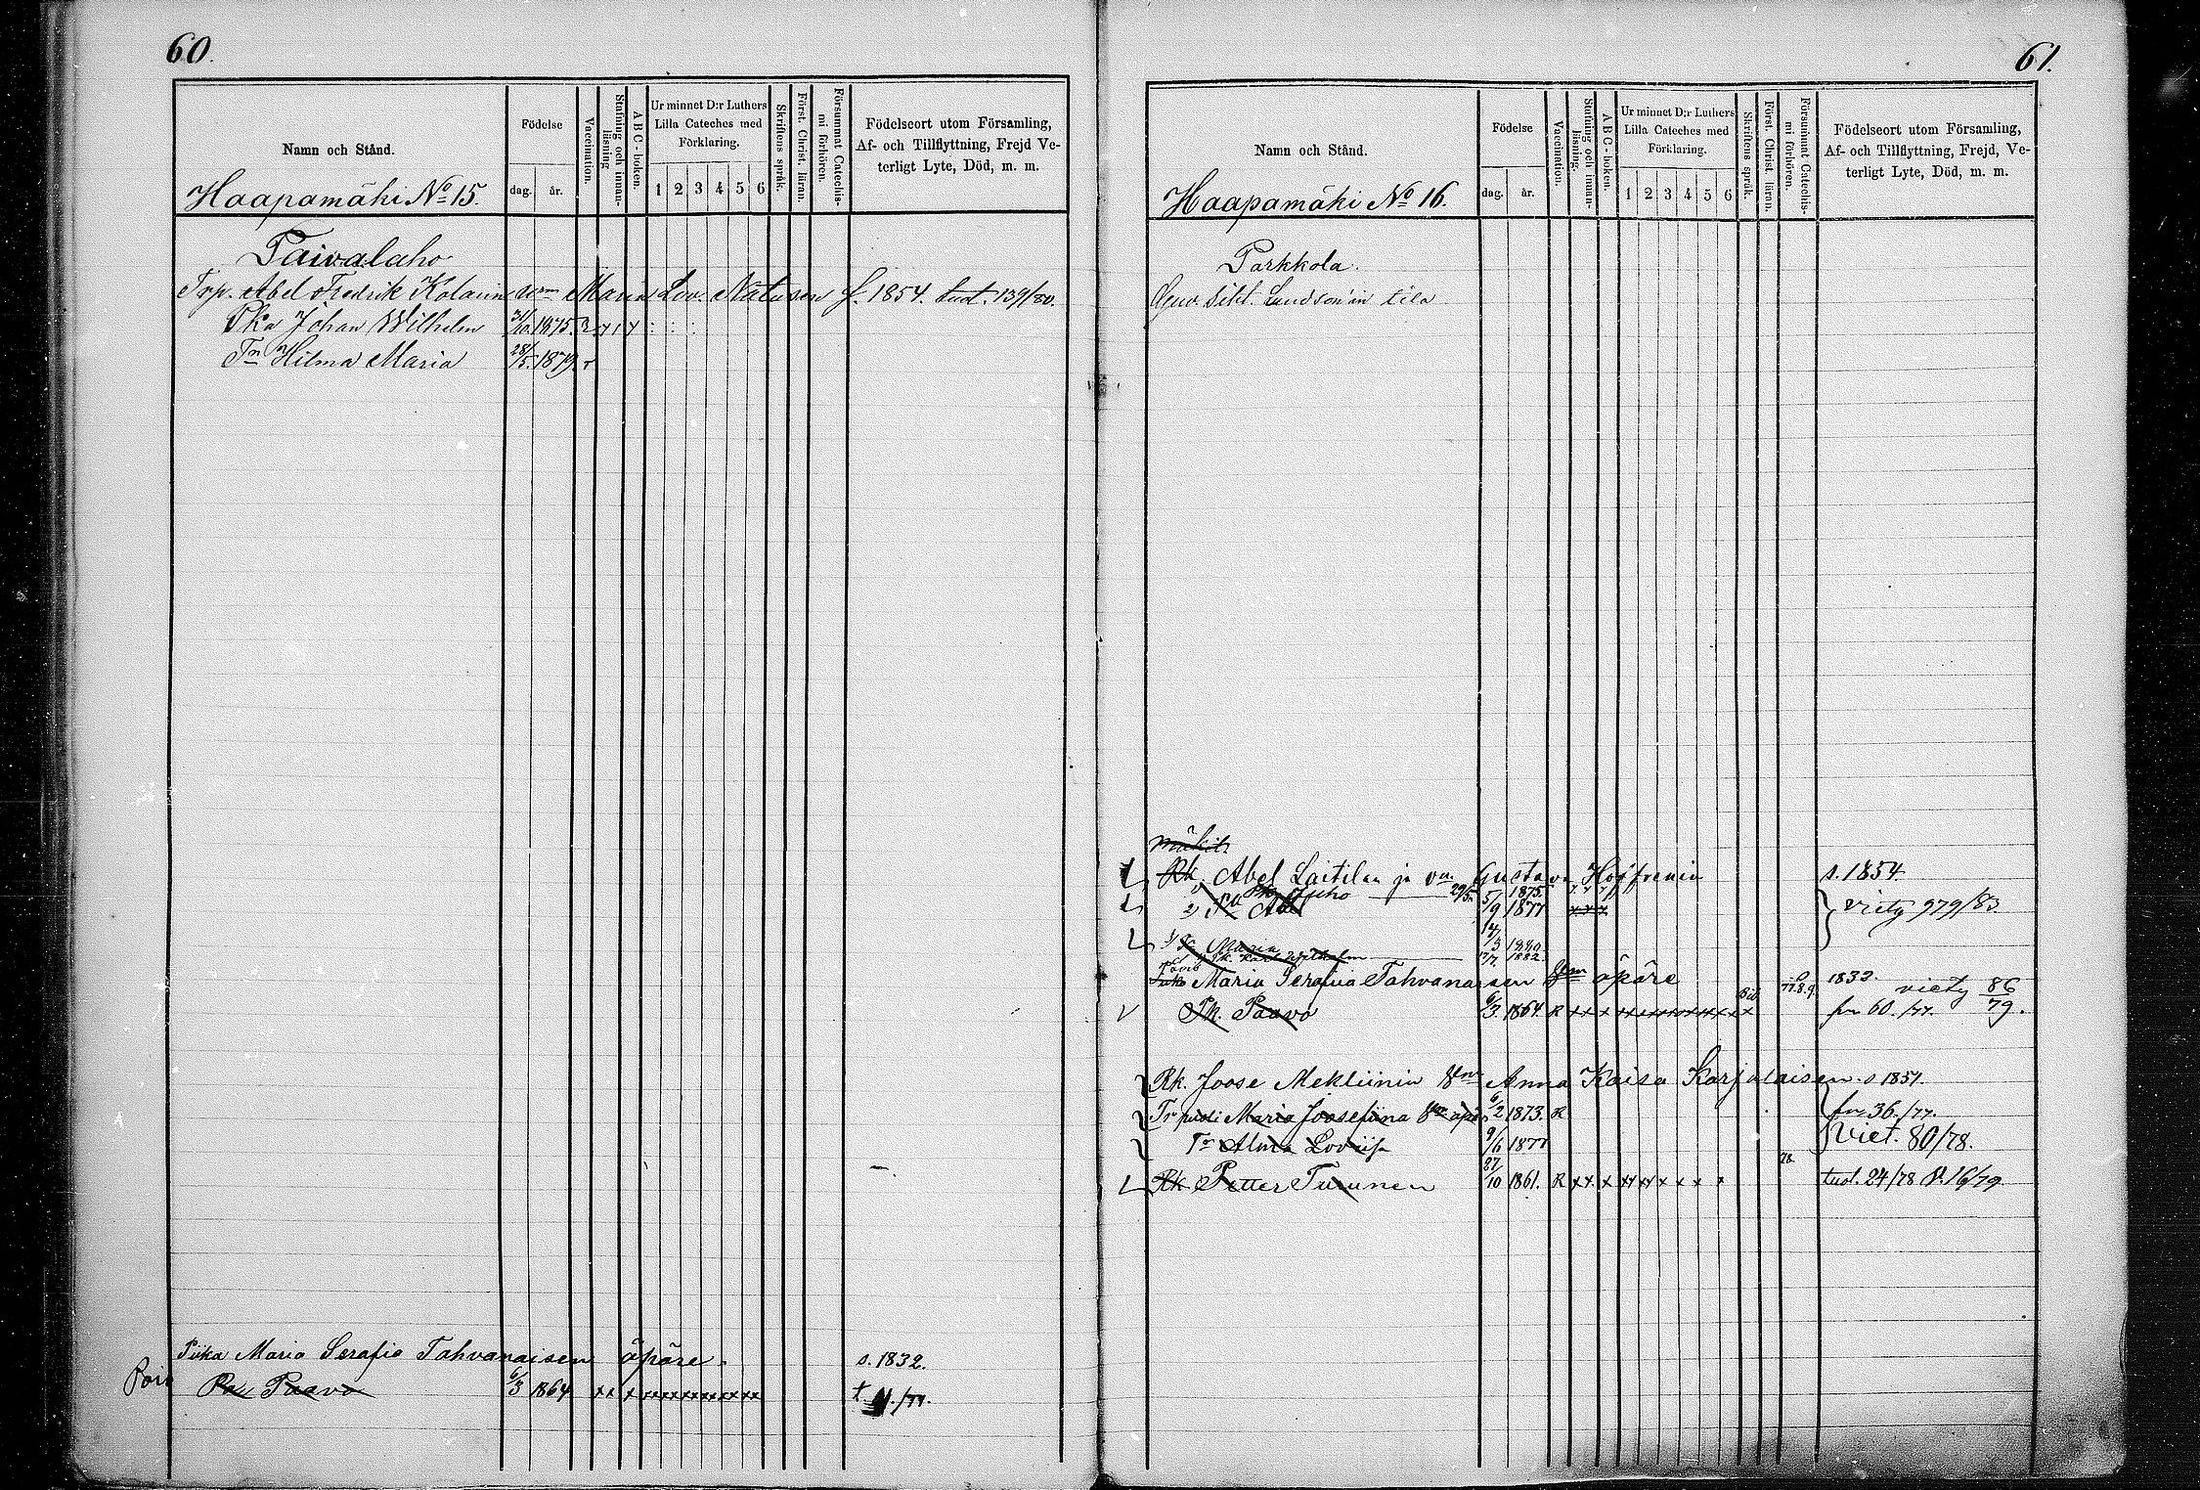 60.
Namn och Stånd.
Födelse
dag. år.
Vaccination.
Stafning och innan-läsning
ABC-boken.
Ur minnet D:r Luthers
Lilla Cateches med
Förklaring.
1 2 3 4 5 6
Skriftens språk.
Först. Christ. läran.
Försummat Catechis-mi förhören.
Födelseort utom Församling,
Af- och Tillflyttning, Frejd Ve-
terligt Lyte, Död, m. m.
Haapamäki No 15.
Taivalaho
Torp. Abel Fredrik Kolarin vrm Maria Lov. Natusen f. 1854. tuot. 139/80.
Pka Johan Wilhelm 31/10. 1875.
Tr Hilma Maria 28/5. 1879.
Piika Maria Serafia Tahvanaisen äpäre. s. 1832.
Pois Pa Paavo 6/3 1864 xx x t 11./77.
61.
Namn och Stånd.
Födelse
dag. år.
Vaccination.
Stafning och innan-läsning.
ABC-boken.
Ur minnet D:r Luthers
Lilla Cateches med
Förklaring.
1 2 3 4 5 6
Skriftens språk.
Först. Christ. läran.
Försummat Catechis-mi förhören.
Födelseort utom Församling,
Af- och Tillflyttning, Frejd, Ve-
terligt Lyte, Död, m. m.
Haapamäki No 16.
Parkkola.
tila
mäkit.
Rk. Abel Laitilan ja vn. Gustava Hoffrenin s. 1854
Juho 29/5 1875
2) Pk Abel 5/9 1877 xxx viety 979/83.
Maria 14/3 1880.
Pk. Karl Wilhelm 7/7. 1882.
Maria Serafia Tahvanaisen äpäre 1832. viety 86/79.
Pk. Paavo 6/3. 1864. R xx x frn 60./77.
Rk. Joose Mekliinin Anna Kaisa Karjalaisen s 1851.
Tr Maria Joosefiina 6/2 1873. R frn 36./77.
Tr Alma Loviisa 9/6 1877 viet. 80/78.
Rk Petter Turunen 27/10 1861. R xx x xx xx x x x x 78. tuot. 24/78 v. 16/79.